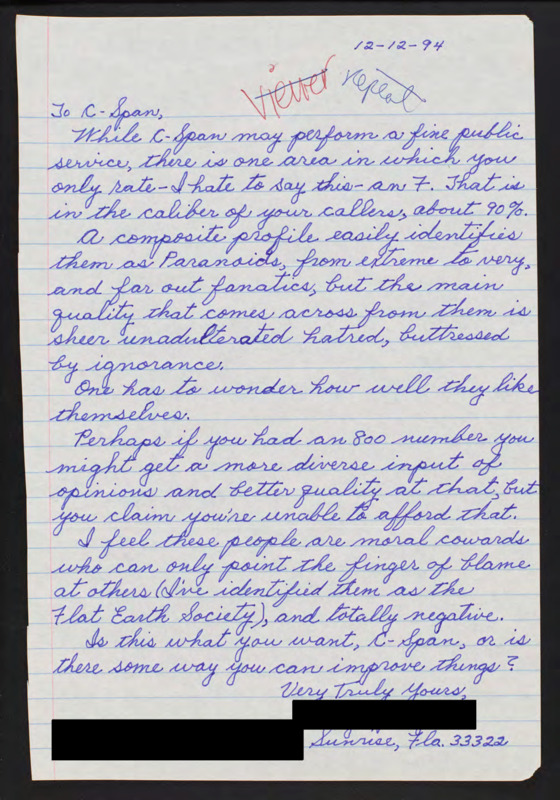 12-12-94
Viewer repeat
To C-Span,
While C-Span may perform a fine public
service, there is one area in which you
only rate-I hate to say this-an F. That is
in the caliber of your callers, about 90%.
A composite profile easily identifies
them as Paranoids, from extreme to very,
and far out fanatics, but the main
quality that comes across from them is
sheer unadulterated hatred, buttressed
by ignorance.
One has to wonder how well they like
themselves.
Perhaps if you had an 800 number you
might get a more diverse input of
opinions and better quality at that, but
you claim you're unable to afford that.
I feel these people are moral cowards
who can only point the finger of blame
at others (I've identified them as the
Flat Earth Society), and totally negative.
Is this what you want, C-Span, or is
there some way you can improve things?
Very Truly Yours,
Sunrise, Fla. 33322